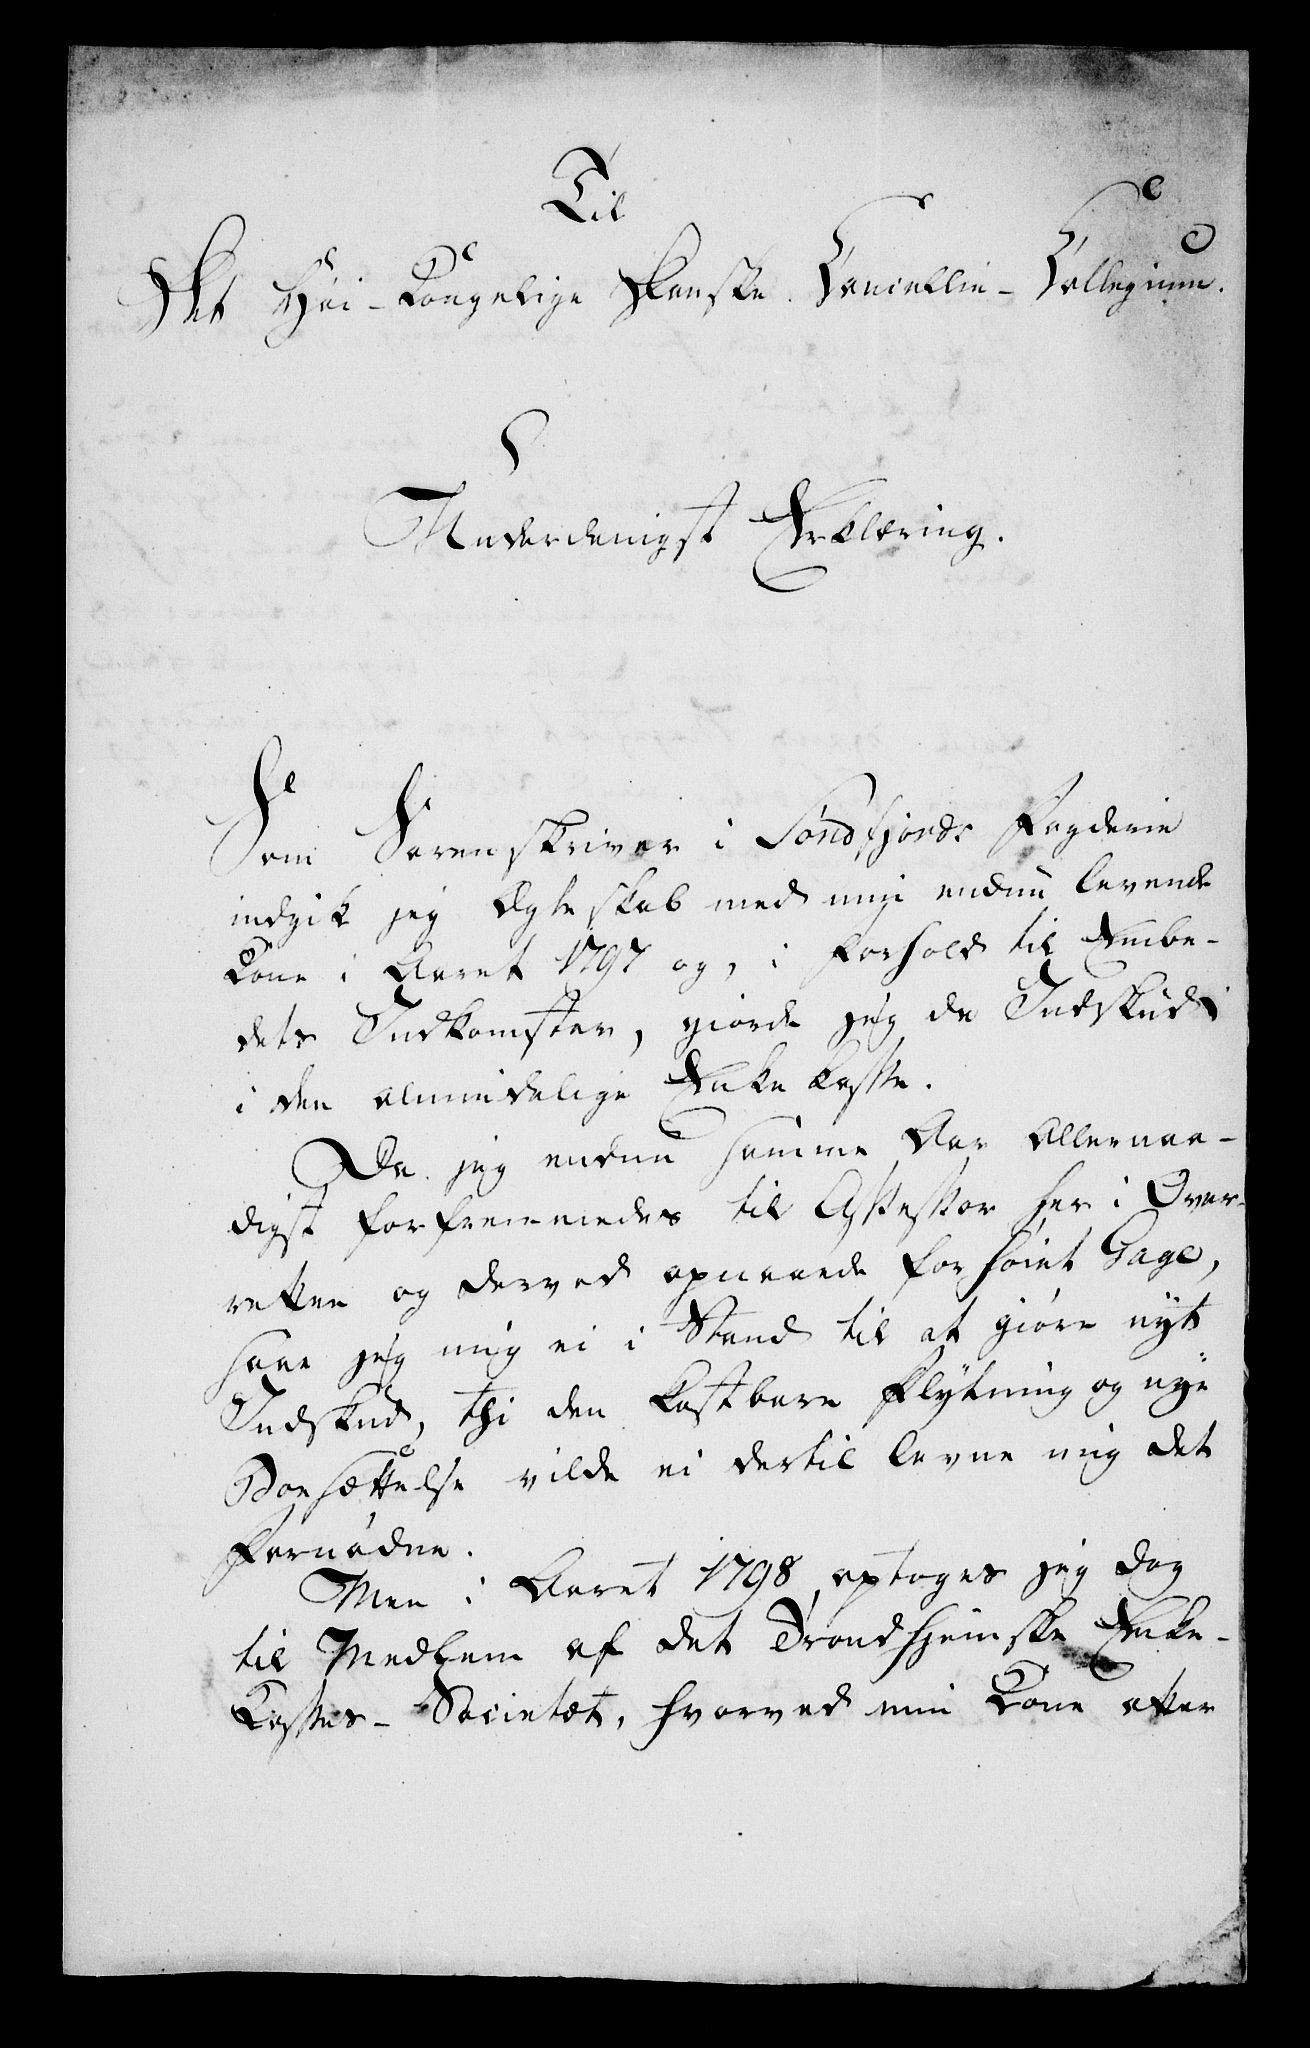 Til
Det Høi-Kongelige Danske Cancellie-Collegium.
Underdanigst Erklæring.
Som Sorenskriver i Søndfjords Fogderie
indgik jeg Ægteskab med min endnu levende
Kone i Aaret 1797 og, i Forhold til Embe-
dets Indkomster, giorde jeg da Indskud
i den almindelige Enke Casse.
Da jeg endnu samme Aar Allernaa-
digst forfremmedes til Assessor her i Over-
retten og derved opnaaede forhøiet Gage,
saae jeg mig ei i Stand til at giøre nyt
Indskud, thi den kostbare Flytning og nye
Boesættelse vilde ei dertil levne mig det
fornødne.
Men i Aaret 1798, optoges jeg dog
til Medlem af det Trondhjemske Enke-
Casses-Societæt, hvorved min Kone efter